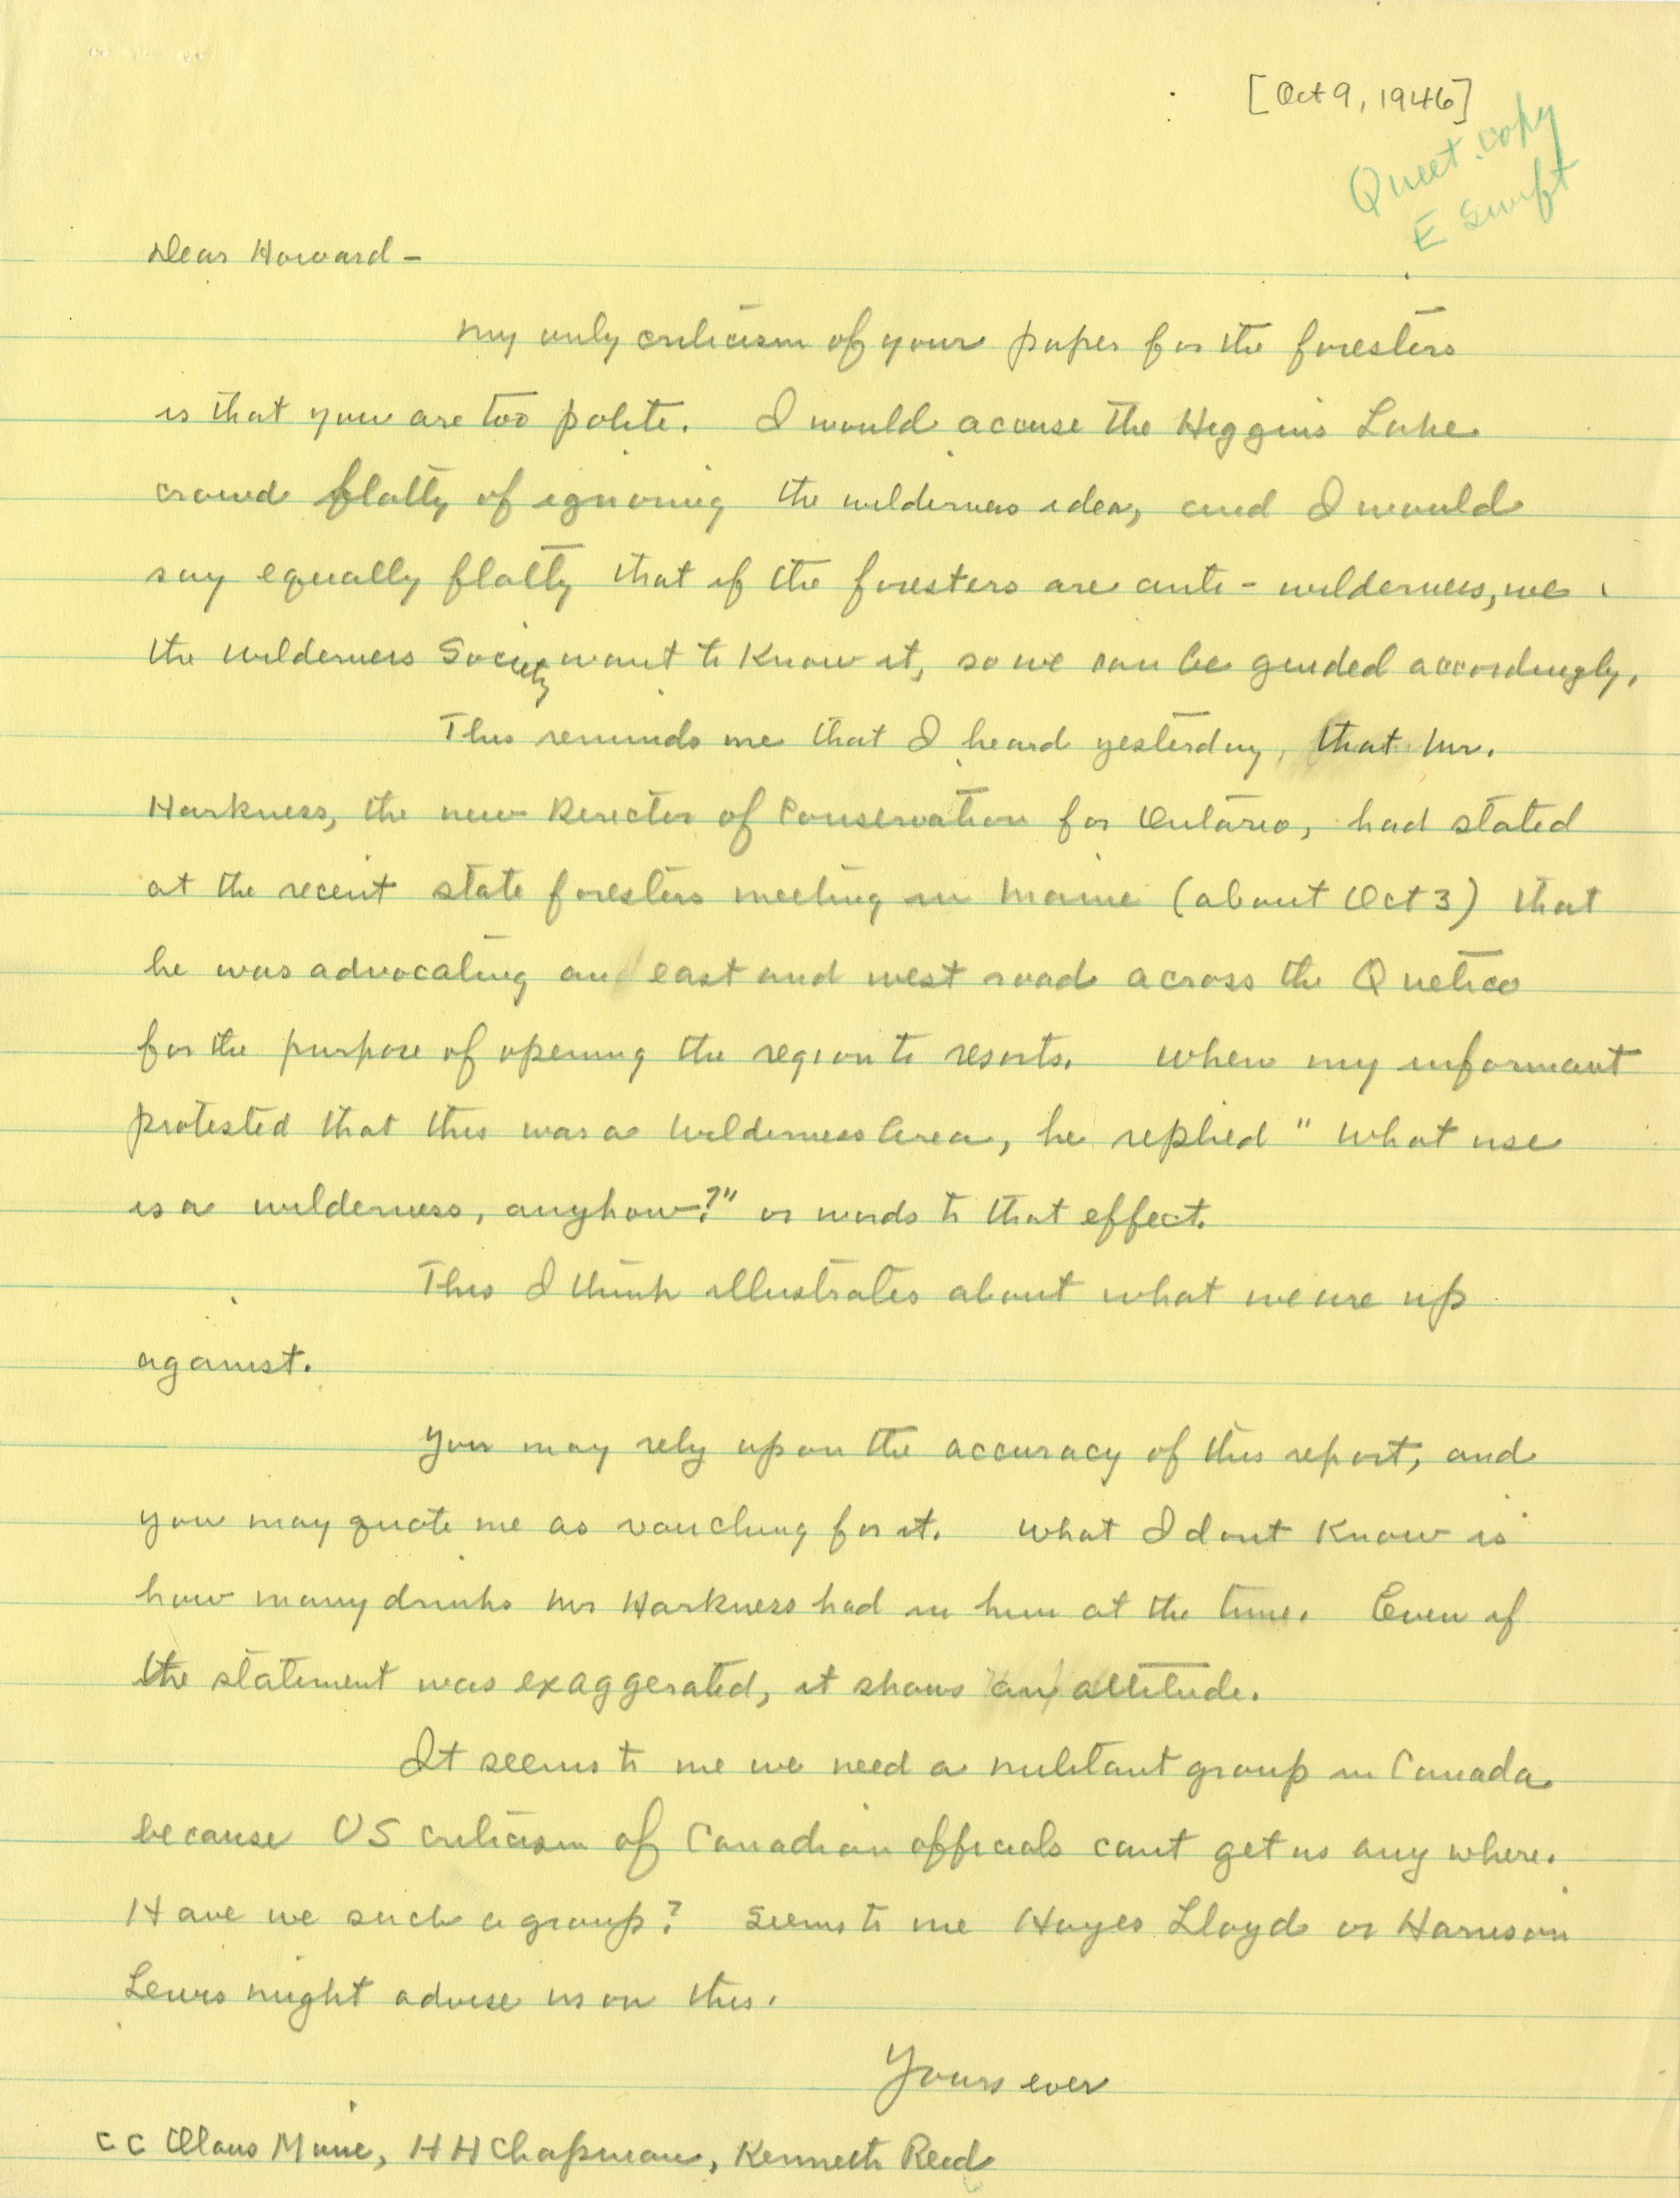 [Oct 9, 1946]
Quet. copy
E Swift
Dear Howard -
My only criticism of your paper for the foresters
is that you are too polite. I would accuse the Higgins Lake
crowd flatly of ignoring the wilderness idea, and I would
say equally flatly that if the foresters are anti-wilderness, we
the Wilderness Society want to know it, so we can be guided accordingly.
This reminds me that I heard yesterday, that Mr.
Harkness, the new Director of Conservation for Ontario, had stated
at the recent state foresters meeting in Maine (about Oct 3) that
he was advocating an east and west road across the Quetico
for the purpose of opening the region to resorts. When my informant
protested that this was a Wilderness Area, he replied "What use
is a wilderness, anyhow?" or words to that effect.
This I think illustrates about what we are up
against.
You may rely upon the accuracy of this report, and
you may quote me as vouching for it. What I dont know is
how many drinks Mr Harkness had in him at the time. Even if
the statement was exaggerated, it shows an attitude.
It seems to me we need a militant group in Canada
because US criticism of Canadian officials cant get us any where.
Have we such a group? Seems to me Hoyes Lloyd or Harrison
Lewis might advise us on this.
Yours ever
cc Olaus Murie, HH Chapman, Kenneth Reid